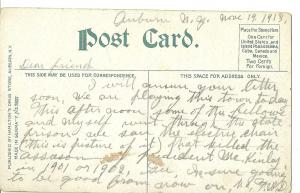 Auburn N.Y. Nov 19 1913.
POST CARD.
Place the Stamp Here
One Cent for
United States
and Island Possessions
Cuba, Canada and
Mexico
Two Cents
For Foreign.
Dear friend
THIS SIDE MAY BE USED FOR CORRESPONDENCE.
THIS SPACE FOR ADDRESS ONLY.
I will answer your letter
soon, we are playing this town today
This afternoon some of the fellows
and myself went thru the state
prison we saw the electric chair
(this is picture of it) that killed the
assassin of President McKinley
in 1901 or 1902, am in sure going
to be good from now on,
PUBLISHED BY HAMILTON'S DRUG STORE, AUBURN, N.Y.
MADE IN GERMANY